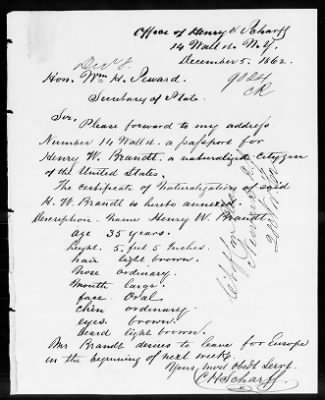 Office of Henry H. Scharff
14 Wall st. N.Y.
December 5. 1862.
Dec 8.
Hon. Wm H. Seward.
Secretary of State.
Sir. Please forward to my address
Number 14 Wall st. a passport for
Henry W. Brandt. a naturalized Citizen
of the United States.
The certificate of Naturalization of said
H. W. Brandt is hereto annexed.
Description. Name Henry W. Brandt
age 35 years.
height. 5. feet 5 Inches.
hair light brown.
Nose ordinary.
Mouth large.
face Oval
chin ordinary
eyes brown.
beard light brown.
Mr Brandt desires to leave for Europe
in the beginning of next week.
Yours, most Obedt Servt.
C H Scharff